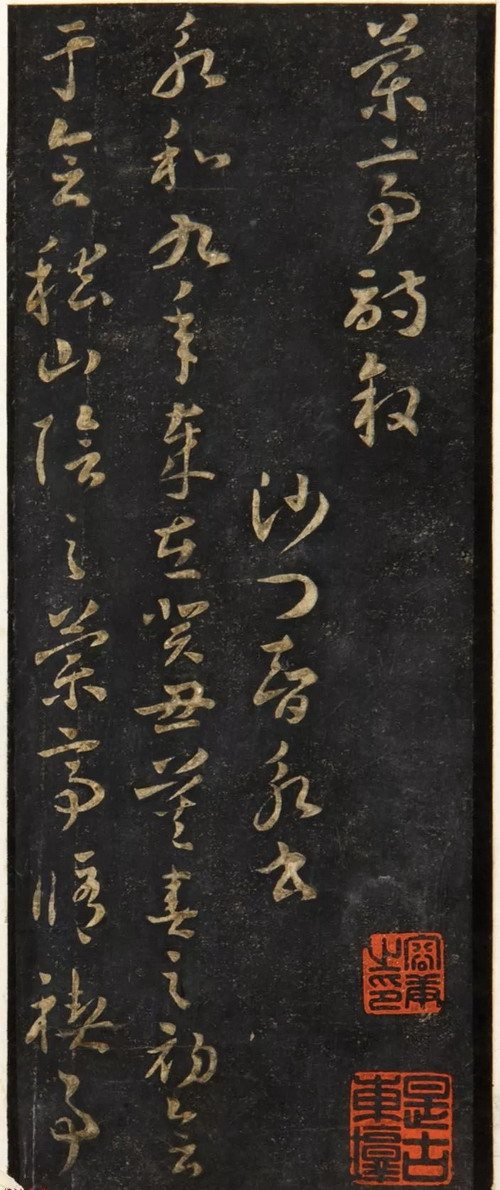 蘭亭詩叙
沙門智永書
永和九年歲在癸丑暮春之初會
于會稽山陰之蘭亭脩禊事